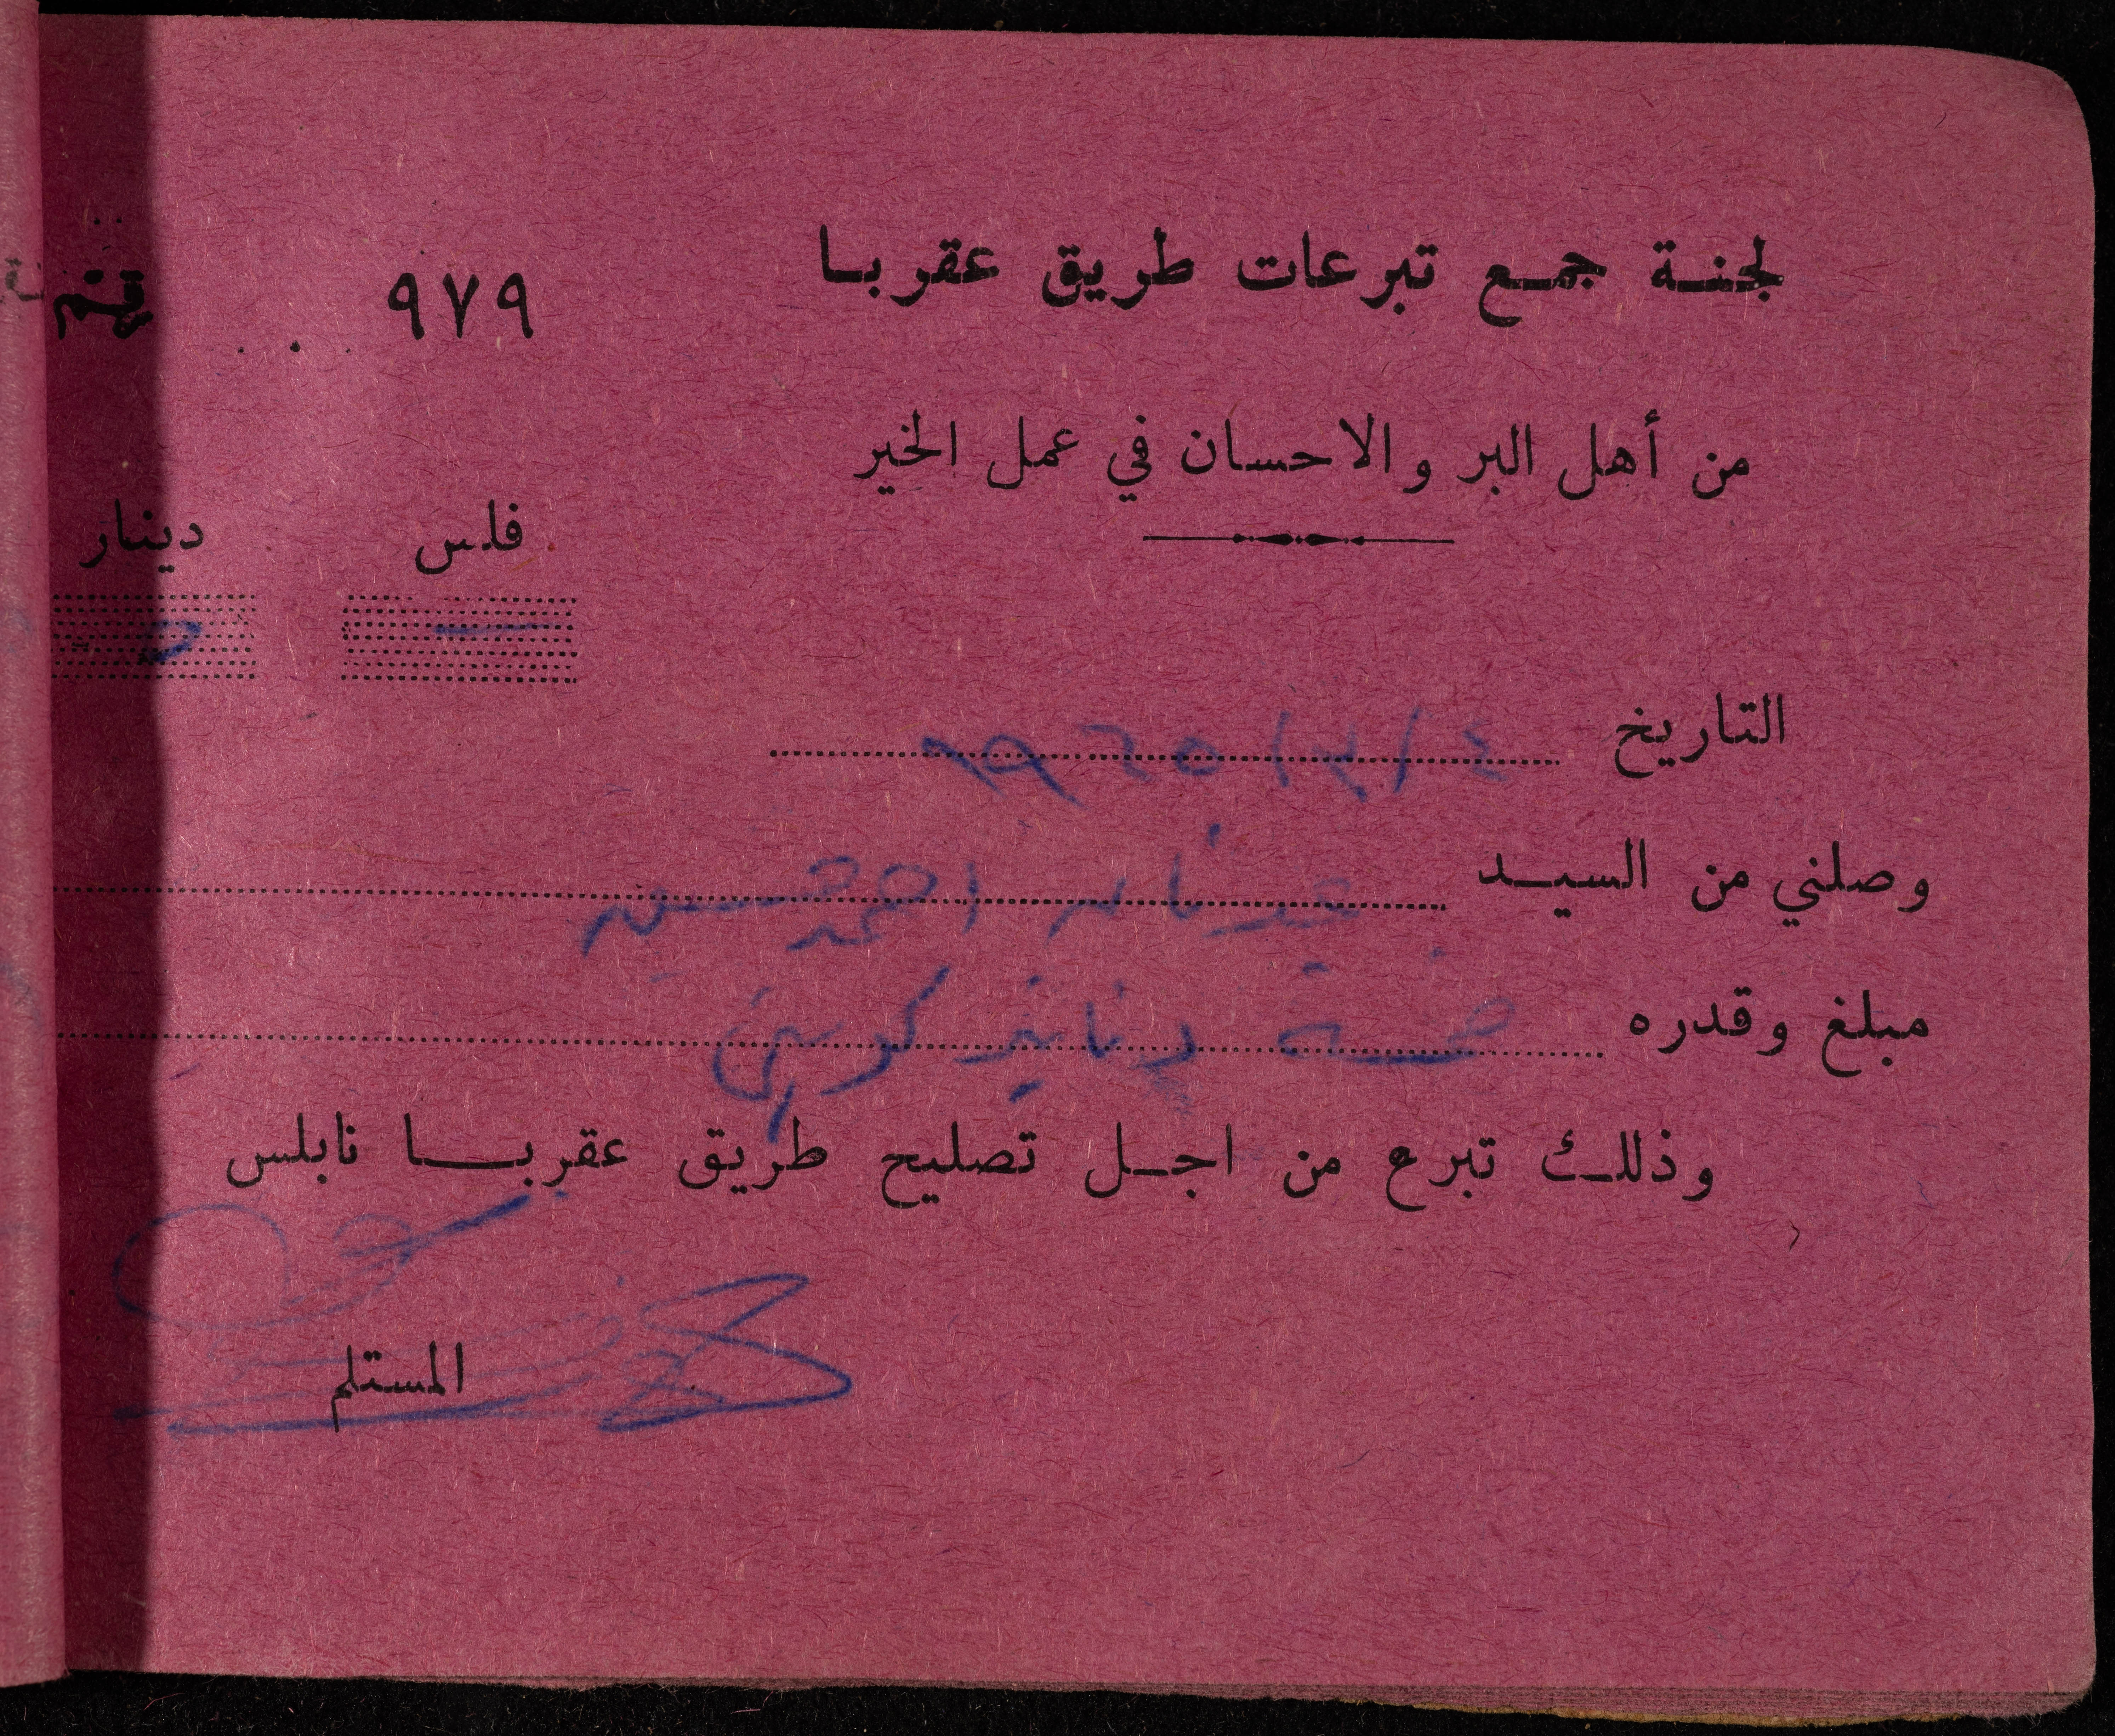 لجنة جمع تبرعات طريق عقربا
٩٧٩
من أهل البر والاحسان في عمل الخير
فلس دينار
— ٥
التاريخ
وصلني من السيد احمد حسين
مبلغ وقدره خمسة دنانير كويتي
وذلك تبرع من اجل تصليح طريق عقربا نابلس
المستلم